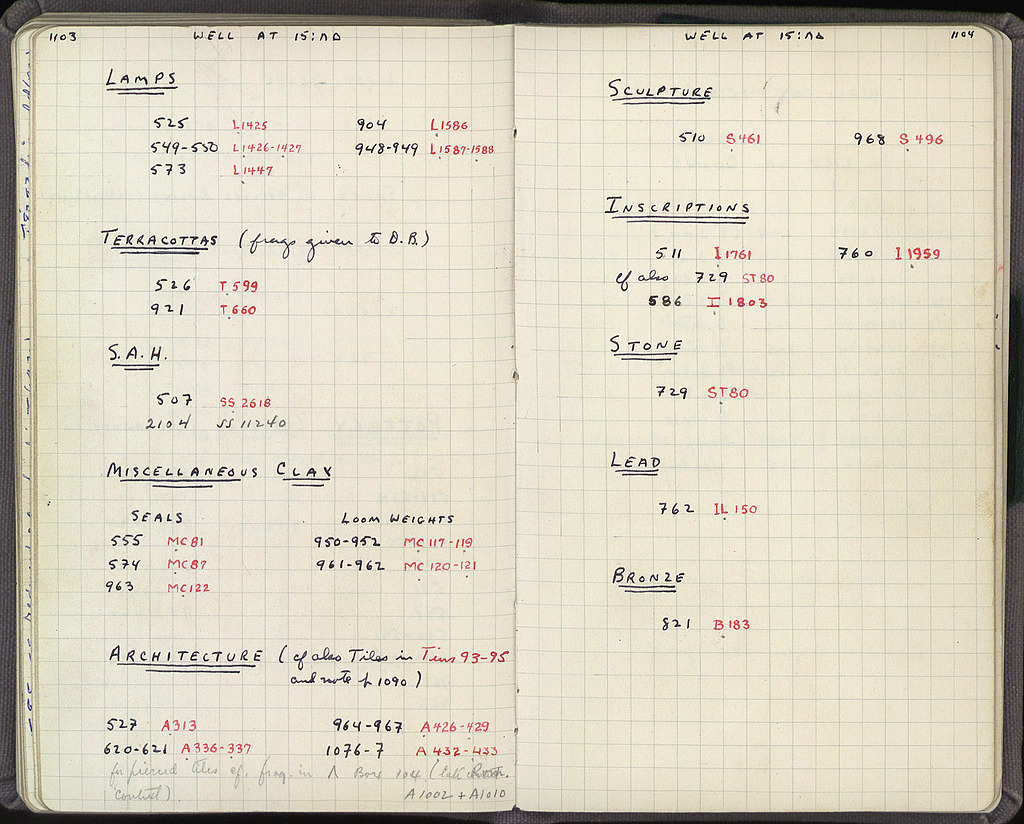 1103 WELL AT 15:ΛΔ
LAMPS
525 L1425 904 L1586
549-550 L1426-1427 948-949 L1587-1588
573 L1447
TERRACOTTAS (frags given to D.B.)
526 T 599
921 T 660
S.A.H.
507 SS 2618
2104 SS 11240
MISCELLANEOUS CLAY
SEALS LOOM WEIGHTS
555 MC81 950-952 MC 117-119
574 MC87 961-962 MC 120-121
963 MC122
ARCHITECTURE (cf also Tiles in Tins 93-95
and note p 1090)
527 A313 964-967 A426-429
620-621 A336-337 1076-7 A 432-433
for pierced tiles cf. frag. in Λ Box 104 (
control).
A1002 + A1010
WELL AT 15:ΛΔ 1104
SCULPTURE
510 S461 968 S 496
INSCRIPTIONS
511 I 1761 760 I 1959
cf also 729 ST80
586 I 1803
STONE
729 ST80
LEAD
762 IL 150
BRONZE
821 B 183